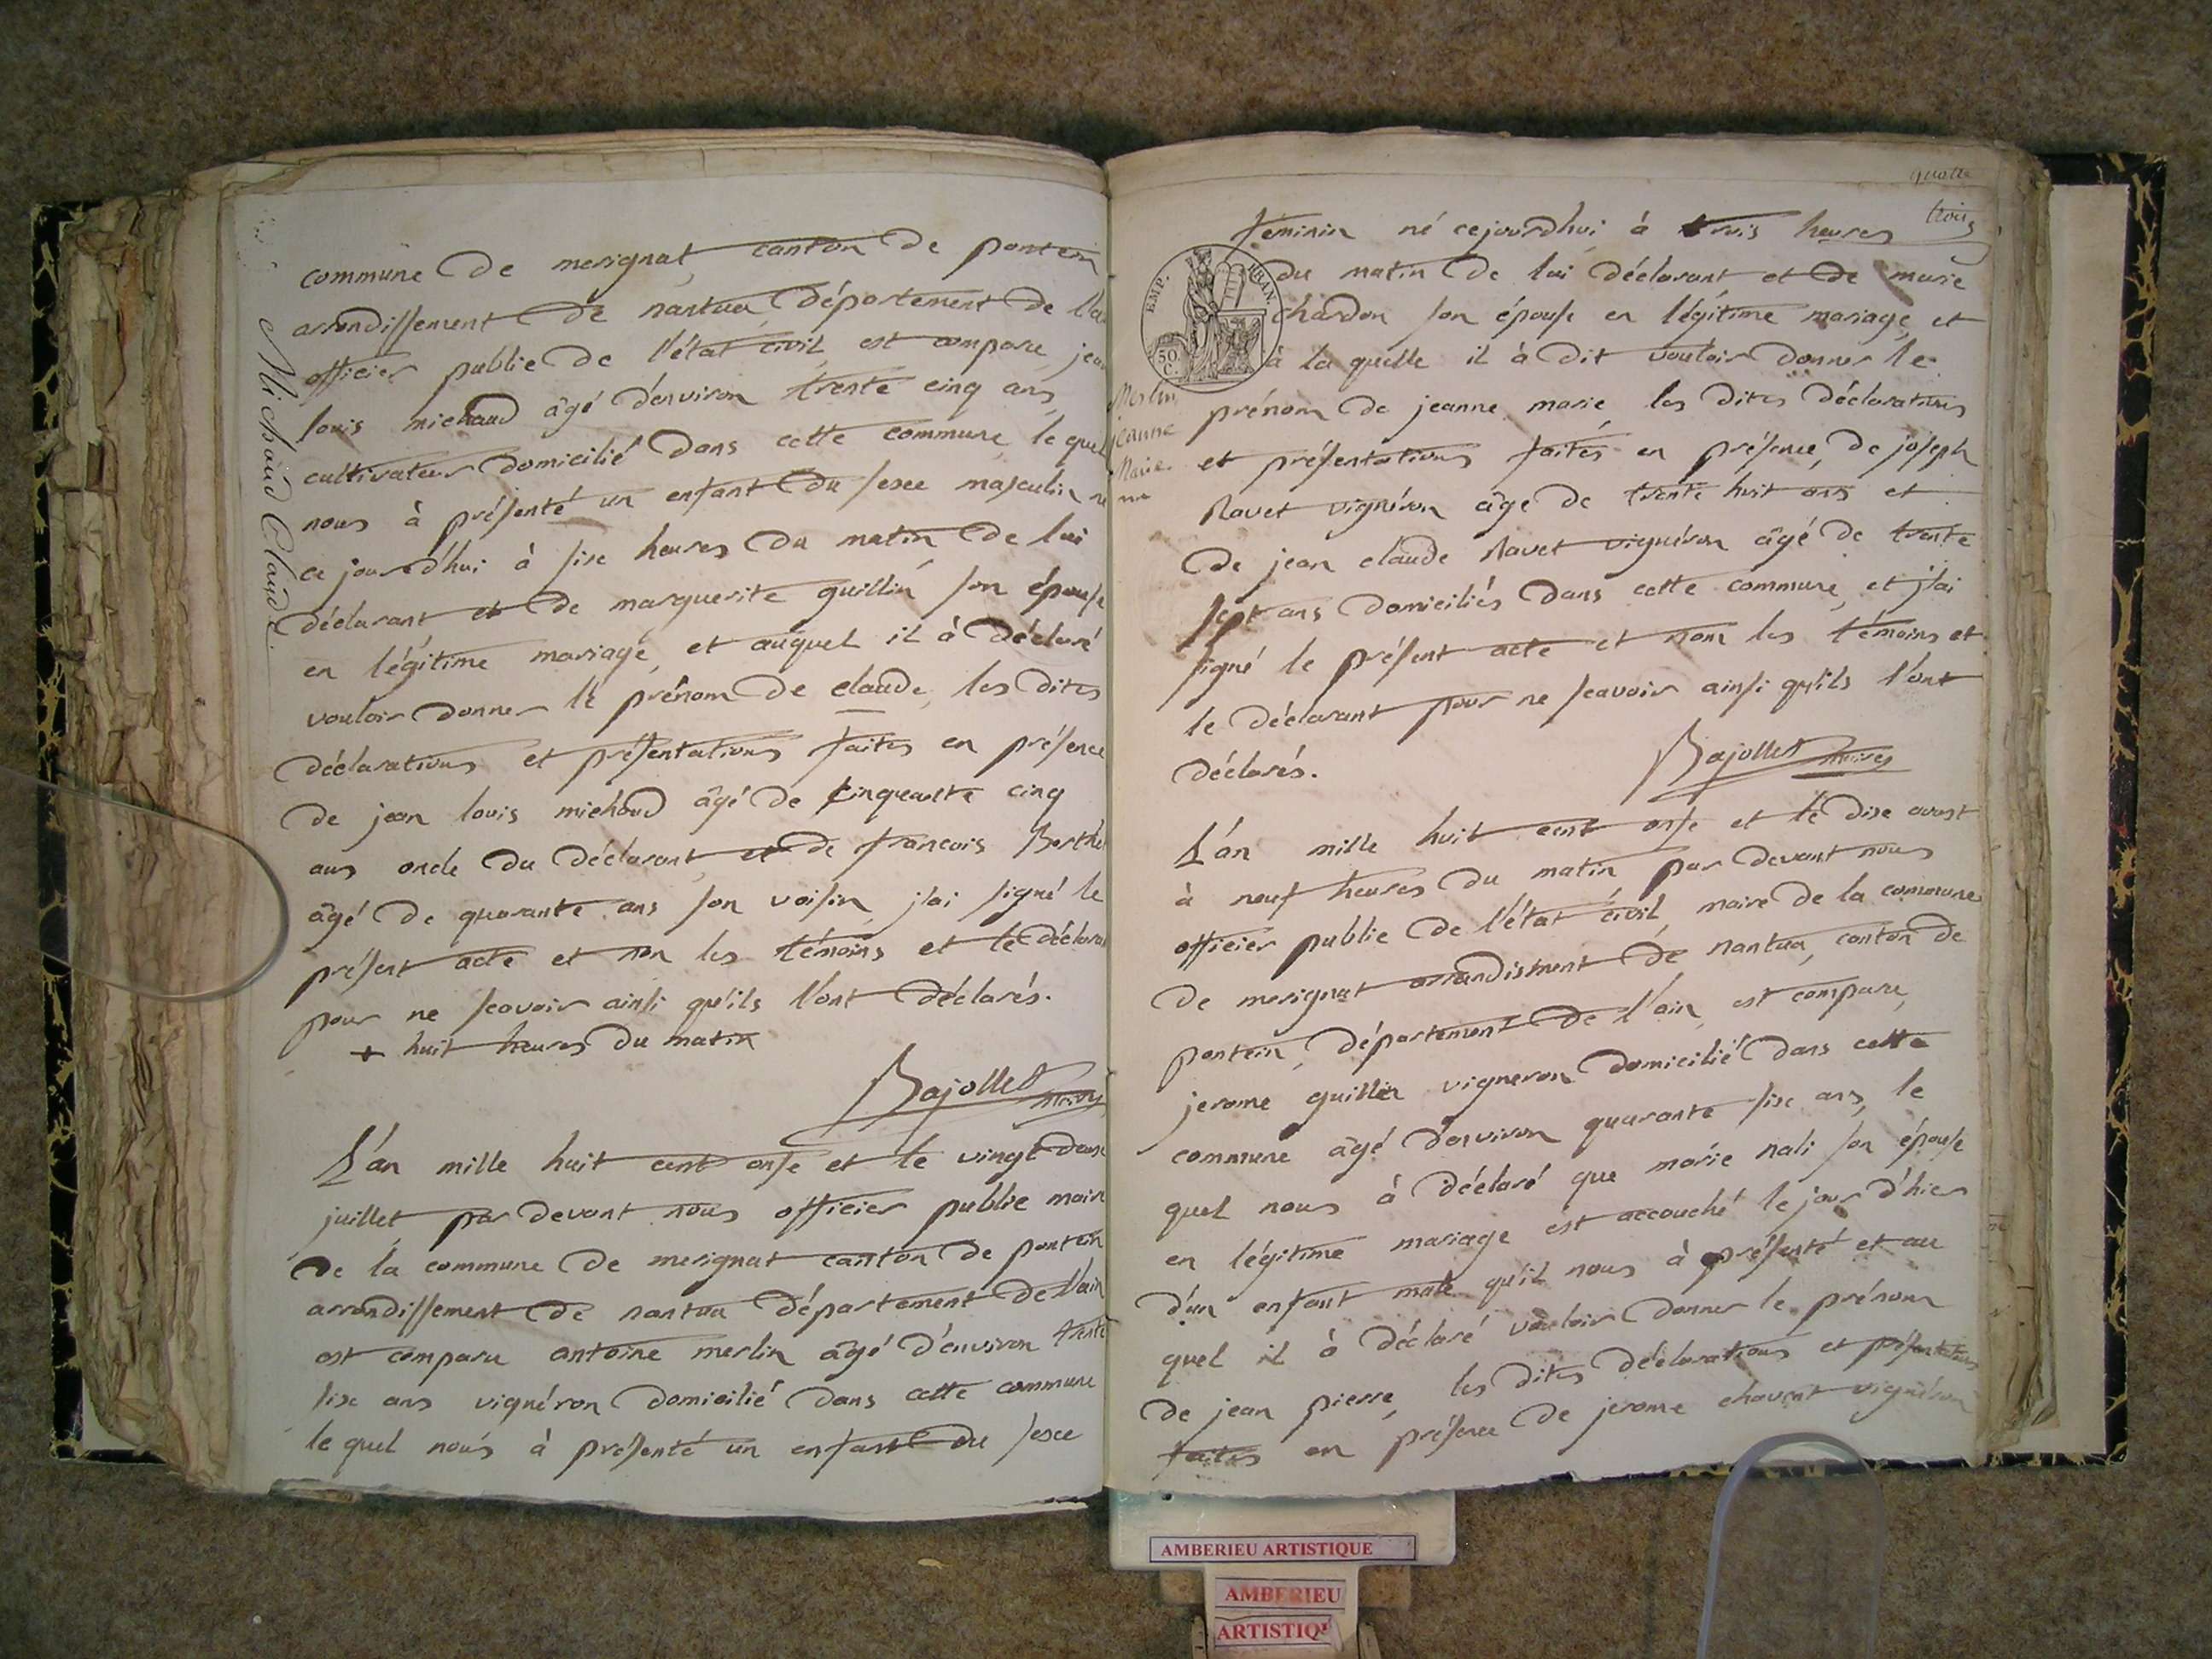 Michoud Claude.
commune de merignat, canton de poncin
arrondissement de nantua, département de l'ain
officier public de l'état civil, est comparu, jean
louis michaud âgé d'environ trente cinq ans,
cultivateur domicilié dans cette commune, le quel
nous à présenté un enfant du sexe masculin né
ce jourd'hui à six heures du matin de lui
déclarant et de marguerite guillin son épouse
en légitime mariage, et auquel il à déclaré
vouloir donner le prénom de claude, les dites
déclarations et présentations faites en présence
de jean louis michoud âgé de cinquante cinq
ans oncle du déclarant, et de francois Berthet
âgé de quarante ans son voisin, j'ai signé le
présent acte et non les témoins et le déclarant
pour ne scavoir ainsi qu'ils l'ont déclarés.
+ huit heures du matin
Bajollet maire
L'an mille huit cent onse et le vingt deux
juillet par devant nous officier public maire
de la commune de merignat canton de poncin
arrondissement de nantua département de l'ain
est comparu antoine merlin âgé d'environ trente
six ans vignéron domicilié dans cette commune
le quel nous à présenté un enfant du sexe
quatre
trois
EMP. FRAN.
50. C.
Merlin
jeanne
Marie
féminin né cejourdhui à trois heures
du matin de lui déclarant et de marie
chardon son épouse en légitime mariage, et
à la quelle il à dit vouloir donner le
prénom de jeanne marie les dites déclarations
et présentations faites en présence, de joseph
Ravet vignéron âgé de trente huit ans et
de jean claude Ravet vignéron âgé de trente
sept ans domiciliés dans cette commune, et j'ai
signé le présent acte et non les témoins et
le déclarant pour ne scavoir ainsi qu'ils l'ont
déclarés.
Bajollet maire
L'an mille huit cent onse et le dix aoust
à neuf heures du matin par devant nous
officier public de l'état civil, maire de la commune
de merignat arrondisment de nantua, canton de
poncin, département de l'ain, est comparu,
jerome guillin vigneron domicilié dans cette
commune âgé d'environ quarante six ans, le
quel nous à déclaré que marie nali son épouse
en légitime mariage est accouché le jour d'hier
d'un enfant mâle qu'il nous à présenté et au
quel il à déclaré vouloir donner le prénom
de jean pierre, les dites déclarations et présentations
faites en présence de jerome chavent vignéron